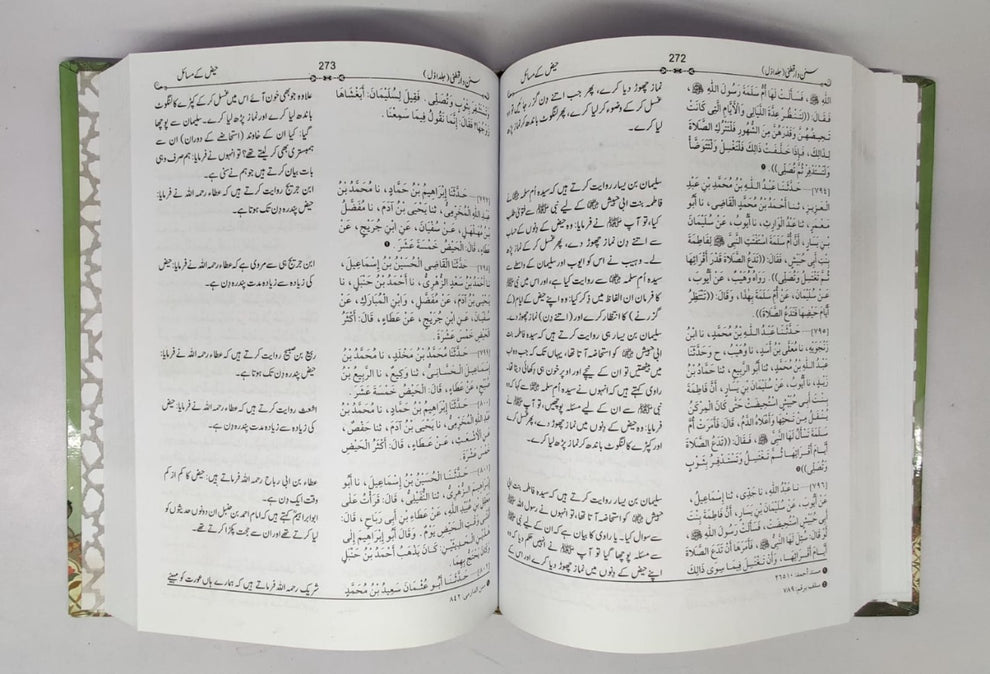 سنن دارقطنی (جلد اوّل)
272
حیض کے مسائل
اللهِ ﷺ، فَسَأَلَتْ لَهَا أُمُّ سَلَمَةَ رَسُولَ اللهِ ﷺ
فَقَالَ: ((لِتَنْظُرْ عِدَّةَ اللَّيَالِي وَالْأَيَّامِ الَّتِي كَانَتْ
تَحِيضُهُنَّ وَقَدْرَهُنَّ مِنَ الشُّهُورِ فَلْتَتْرُكِ الصَّلَاةَ
لِذَالِكَ، فَإِذَا خَلَّفَتْ ذَالِكَ فَلْتَغْتَسِلْ وَلْتَتَوَضَّأْ
وَلْتَسْتَذْفِرْ ثُمَّ تُصَلِّي)).
[٧٩٤] ... حَدَّثَنَا عَبْدُ اللّٰهِ بْنُ مُحَمَّدِ بْنِ عَبْدِ
الْعَزِيزِ، ثنا أَحْمَدُ بْنُ مُحَمَّدٍ الْقَاضِي، نا أَبُو
مَعْمَرٍ، ثنا عَبْدُ الْوَارِثِ، نا أَيُّوبُ، عَنْ سُلَيْمَانَ
بْنِ يَسَارٍ، أَنَّ أُمَّ سَلَمَةَ اسْتَفْتَتِ النَّبِيَّ ﷺ لِفَاطِمَةَ
بِنْتِ أَبِي حُبَيْشٍ، فَقَالَ: ((تَدَعُ الصَّلَاةَ قَدْرَ أَقْرَائِهَا
ثُمَّ تَغْتَسِلُ وَتُصَلِّي)). رَوَاهُ وُهَيْبٌ، عَنْ أَيُّوبَ،
عَنْ سُلَيْمَانَ، عَنْ أُمِّ سَلَمَةَ بِهٰذَا، وَقَالَ: ((تَنْتَظِرُ
أَيَّامَ حَيْضِهَا فَتَدَعُ الصَّلَاةَ)).
[٧٩٥] ... حَدَّثَنَا عَبْدُ اللّٰهِ بْنُ مُحَمَّدٍ، نا ابْنُ
زَنْجُوَيْهِ، نا مُعَلَّى بْنُ أَسَدٍ، نا وُهَيْبٌ، ح وَحَدَّثَنَا
عَبْدُ اللّٰهِ بْنُ مُحَمَّدٍ، نا أَبُو الرَّبِيعِ، ثنا حَمَّادُ بْنُ
زَيْدٍ، نا أَيُّوبُ، عَنْ سُلَيْمَانَ بْنِ يَسَارٍ، أَنَّ فَاطِمَةَ
بِنْتَ أَبِي حُبَيْشٍ اسْتُحِيضَتْ حَتّٰى كَانَ الْمِرْكَنُ
يُنْقَلُ مِنْ تَحْتِهَا وَأَعْلَاهُ الدَّمُ، قَالَ: فَأَمَرَتْ أُمَّ
سَلَمَةَ تَسْأَلُ لَهَا النَّبِيَّ ﷺ، فَقَالَ: ((تَدَعُ الصَّلَاةَ
أَيَّامَ أَقْرَائِهَا ثُمَّ تَغْتَسِلُ وَتَسْتَذْفِرُ بِثَوْبٍ
وَتُصَلِّي)).
[٧٩٦] ... نا عَبْدُ اللّٰهِ، نا جَدِّي، نا إِسْمَاعِيلُ،
عَنْ أَيُّوبَ، عَنْ سُلَيْمَانَ بْنِ يَسَارٍ، أَنَّ فَاطِمَةَ بِنْتَ
أَبِي حُبَيْشٍ اسْتُحِيضَتْ، فَسَأَلَتْ رَسُولَ اللهِ ﷺ،
أَوْ قَالَ: سُئِلَ لَهَا النَّبِيُّ ﷺ، فَأَمَرَهَا أَنْ تَدَعَ الصَّلَاةَ
أَيَّامَ أَقْرَائِهَا، وَأَنْ تَغْتَسِلَ فِيمَا سِوَى ذَالِكَ
نماز چھوڑ دیا کرے، پھر جب اتنے دن گزر جائیں تو وہ
غسل کر کے وضوء کر لیا کرے، پھر لنگوٹ باندھ کر نماز پڑھ
لیا کرے۔
سلیمان بن یسار روایت کرتے ہیں کہ سیدہ اُم سلمہ
فاطمہ بنت ابی حبیش کے لیے نبی ﷺ سے فتویٰ طلب
کیا، تو آپ ﷺ نے فرمایا: وہ حیض کے دنوں کے حساب
سے اتنے دن نماز چھوڑ دے، پھر غسل کر کے نماز پڑھ
لے۔ وہیب نے اس کو ایوب اور سلیمان کے واسطے سے
سیدہ اُم سلمہ سے روایت کیا ہے، اس میں نبی ﷺ
کا فرمان ان الفاظ میں ذکر کیا: وہ اپنے حیض کے ایام (کے
گزرنے) کا انتظار کرے اور (اتنے دن) نماز چھوڑ دے۔
سلیمان بن یسار ہی روایت کرتے ہیں کہ سیدہ فاطمہ بنت
ابی حبیش کو استحاضہ آتا تھا، یہاں تک کہ جب وہ ٹب
میں بیٹھتیں تو ان کے نیچے اور اوپر خون ہی دکھائی دیتا تھا،
راوی کہتے ہیں کہ انہوں نے سیدہ اُم سلمہ سے کہا کہ
نبی ﷺ سے ان کے لیے مسئلہ پوچھیں، تو آپ ﷺ نے
فرمایا: وہ حیض کے دنوں میں نماز چھوڑ دے، پھر غسل کرے
اور کپڑے کا لنگوٹ باندھ کر نماز پڑھ لیا کرے۔
سلیمان بن یسار روایت کرتے ہیں کہ سیدہ فاطمہ بنت ابی
حبیش کو استحاضہ آتا تھا، تو انہوں نے رسول اللہ ﷺ
سے سوال کیا۔ یا راوی کا بیان ہے کہ ان کے لیے آپ ﷺ
سے مسئلہ پوچھا گیا تو آپ ﷺ نے انہیں حکم دیا کہ وہ
اپنے حیض کے دنوں میں نماز چھوڑ دیا کرے اور اس کے
❶ مسند أحمد: ٢٦٥١٠
❷ سلف برقم: ٧٨٩
سنن دارقطنی (جلد اوّل)
273
حیض کے مسائل
وَتَسْتَثْفِرَ بِثَوْبٍ وَتُصَلِّيَ. فَقِيلَ لِسُلَيْمَانَ: أَيَغْشَاهَا
زَوْجُهَا؟ فَقَالَ: إِنَّمَا نَقُولُ فِيمَا سَمِعْنَا.
[٧٩٧] ... حَدَّثَنَا إِبْرَاهِيمُ بْنُ حَمَّادٍ، نا مُحَمَّدُ بْنُ
عَبْدِ اللّٰهِ الْمُخَرِّمِيُّ، ثنا يَحْيَى بْنُ آدَمَ، نا مُفَضَّلُ
بْنُ مُهَلْهَلٍ، عَنْ سُفْيَانَ، عَنِ ابْنِ جُرَيْجٍ، عَنْ
عَطَاءٍ، قَالَ: الْحَيْضُ خَمْسَةَ عَشَرَ.
[٧٩٨] ... حَدَّثَنَا الْقَاضِي الْحُسَيْنُ بْنُ إِسْمَاعِيلَ،
نا أَحْمَدُ بْنُ سَعْدٍ الزُّهْرِيُّ، نا أَحْمَدُ بْنُ حَنْبَلٍ، نا
يَحْيَى بْنُ آدَمَ، عَنْ مُفَضَّلٍ، وَابْنِ الْمُبَارَكِ، عَنْ
سُفْيَانَ، عَنِ ابْنِ جُرَيْجٍ، عَنْ عَطَاءٍ، قَالَ: أَكْثَرُ
الْحَيْضِ خَمْسَ عَشْرَةَ.
[٧٩٩] ... حَدَّثَنَا مُحَمَّدُ بْنُ مَخْلَدٍ، نا مُحَمَّدُ بْنُ
إِسْمَاعِيلَ الْحَسَّانِيُّ، ثنا وَكِيعٌ، نا الرَّبِيعُ بْنُ
صَبِيحٍ، عَنْ عَطَاءٍ، قَالَ: الْحَيْضُ خَمْسَةَ عَشَرَ.
[٨٠٠] ... حَدَّثَنَا إِبْرَاهِيمُ بْنُ حَمَّادٍ، نا مُحَمَّدُ بْنُ
عَبْدِ اللّٰهِ الْمُخَرِّمِيُّ، نا يَحْيَى بْنُ آدَمَ، ثنا حَفْصٌ،
عَنِ الْأَشْعَثِ، عَنْ عَطَاءٍ، قَالَ: أَكْثَرُ الْحَيْضِ
خَمْسَ عَشْرَةَ.
[٨٠١] ... حَدَّثَنَا الْحُسَيْنُ بْنُ إِسْمَاعِيلَ، نا أَبُو
إِبْرَاهِيمَ الزُّهْرِيُّ، ثنا النُّفَيْلِيُّ، قَالَ: قَرَأْتُ عَلَى
عَنْ عَطَاءِ بْنِ أَبِي رَبَاحٍ، قَالَ:
أَدْنَى وَقْتِ الْحَيْضِ يَوْمٌ. وَقَالَ أَبُو إِبْرَاهِيمَ: إِلَى
هٰذَيْنِ الْحَدِيثَيْنِ كَانَ يَذْهَبُ أَحْمَدُ بْنُ حَنْبَلٍ
وَكَانَ يَحْتَجُّ بِهِمَا.
[٨٠٢] ... حَدَّثَنَا أَبُو عُثْمَانَ سَعِيدُ بْنُ مُحَمَّدٍ
علاوہ جو بھی خون آئے اس میں غسل کر کے کپڑے کا لنگوٹ
باندھ لیا کرے اور نماز پڑھ لیا کرے۔ سلیمان سے پوچھا
گیا: کیا ان کے خاوند (استحاضے کے دوران) ان سے
ہمبستری بھی کر لیتے تھے؟ تو انہوں نے فرمایا: ہم صرف وہی
بات بیان کرتے ہیں جو ہم نے سنی ہے۔
ابن جریج روایت کرتے ہیں کہ عطاء رحمہ اللہ نے فرمایا:
حیض پندرہ دن تک ہوتا ہے۔
ابن جریج ہی سے مروی ہے کہ عطاء رحمہ اللہ نے فرمایا: حیض
کی زیادہ سے زیادہ مدت پندرہ دن ہے۔
ربیع بن صبیح روایت کرتے ہیں کہ عطاء رحمہ اللہ نے فرمایا:
حیض پندرہ دن تک ہوتا ہے۔
اشعث روایت کرتے ہیں کہ عطاء رحمہ اللہ نے فرمایا: حیض
کی زیادہ سے زیادہ مدت پندرہ دن ہے۔
عطاء بن ابی رباح رحمہ اللہ فرماتے ہیں: حیض کا کم از کم
وقت ایک دن ہے۔
ابو ابراہیم کہتے ہیں کہ امام احمد بن حنبل ان دونوں حدیثوں کو
لیا کرتے تھے اور ان سے حجت پکڑا کرتے تھے۔
شریک رحمہ اللہ فرماتے ہیں کہ ہمارے ہاں عورت کو مہینے
❶ سنن الدارمی: ٨٤٢